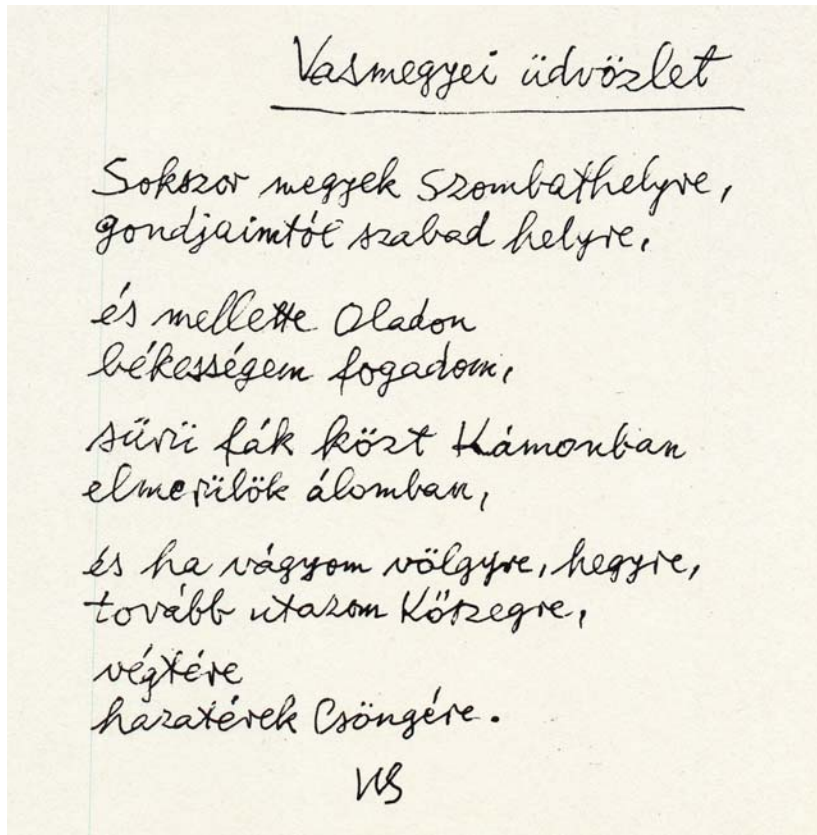 Vasmegyei üdvözlet
Sokszor megyek Szombathelyre,
gondjaimtól szabad helyre,
és mellette Oladon
békességem fogadom,
sűrü fák közt Kámonban
elmerülök álomban,
és ha vágyom völgyre, hegyre,
tovább utazom Kőszegre,
végtére
hazatérek Csöngére.
WS